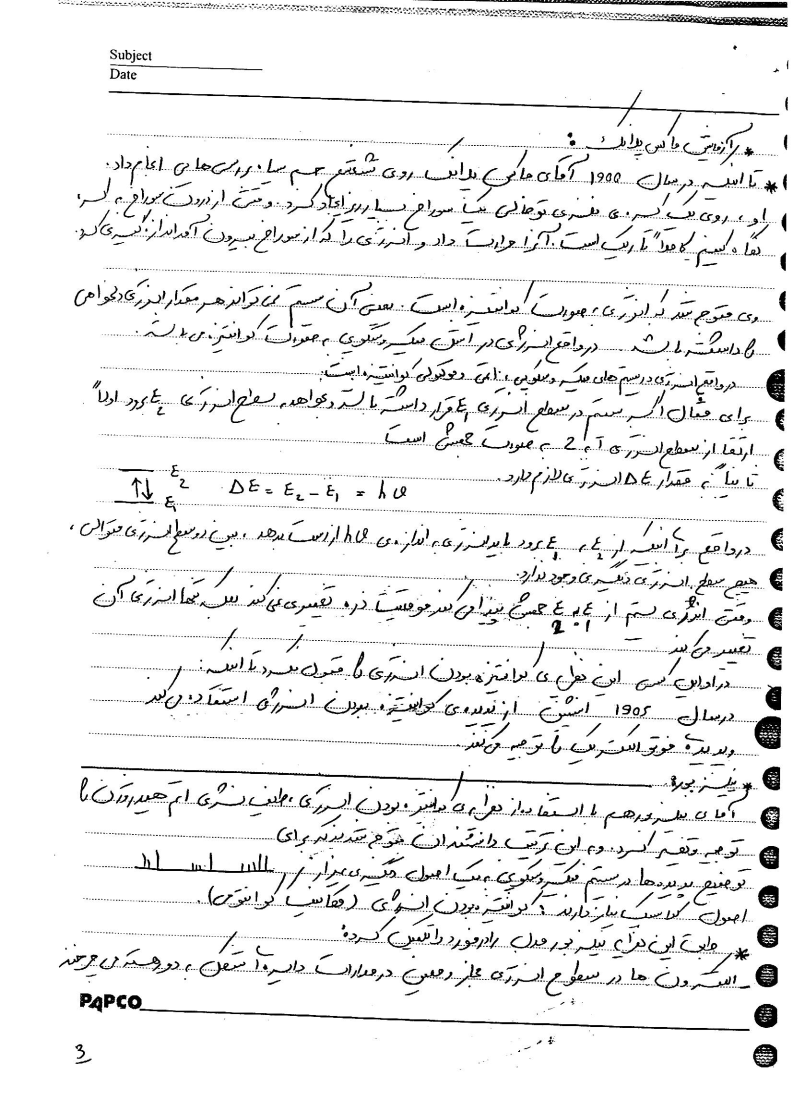 Subject
Date
* آزمایش ماکس پلانک :
* تا اینکه در سال 1900 آقای ماکس پلانک روی تشعشع جسم سیاه بررسی هایی انجام داد.
او، روی یک کره ی فلزی توخالی یک سوراخ بسیار ریز ایجاد کرد. وقتی از درون سوراخ به کره
نگاه کنیم کاملاً تاریک است. آنرا حرارت داد و انرژی را که از سوراخ بیرون آمد اندازه گیری کرد.
وی متوجه شد که انرژی، بصورت کوانتیزه است. یعنی آن سیستم نمی تواند هر مقدار انرژی دلخواهی
را داشته باشد. در واقع انرژی در میکروسکوپی به صورت کوانتیزه می باشد.
در واقع انرژی در سیستم های میکروسکوپی، اتمی و مولکولی کوانتیزه است.
برای مثال اگر سیستم در سطح انرژی ε₁ قرار داشته باشد و بخواهد به سطح انرژی ε₂ برود اولاً
ارتقا از سطح انرژی 1 به 2 به صورت جهشی است
ثانیاً به مقدار ΔE انرژی لازم دارد.
ε₂
ΔE = ε₂ - ε₁ = hυ
ε₁
در واقع برای اینکه از ε₂ به ε₁ برود باید انرژی به اندازه ی hυ از دست بدهد، بین دو سطح انرژی متوالی،
هیچ سطح انرژی دیگری وجود ندارد.
وقتی انرژی سیستم از ε₁ به ε₂ جهش پیدا می کند موقعیت ذره تغییری نمی کند بلکه تنها انرژی آن
تغییر می کند
در اوایل کسی این نظریه ی کوانتیزه بودن انرژی را قبول نکرد تا اینکه :
در سال 1905 انشتین از پدیده ی کوانتیزه بودن انرژی استفاده می کند
و پدیده فوتوالکتریک را توجیه می کند.
* نیلز بور:
آقای نیلز بور هم با استفاده از نظریه ی کوانتیزه بودن انرژی، طیف نشری اتم هیدروژن را
توجیه و تفسیر کرد. و به این ترتیب دانشمندان متوجه شدند که برای
توضیح پدیده ها در سیستم میکروسکوپی به یک اصول دیگری غیر از
اصول کلاسیک نیاز دارند : کوانتیزه بودن انرژی (مکانیک کوانتومی).
* نیلز بور مدل رادرفورد را تکمیل کرد:
- الکترون ها در سطوح انرژی مجاز و معین در مدارات دایره ای شکل به دور هسته می چرخند
PAPCO
3